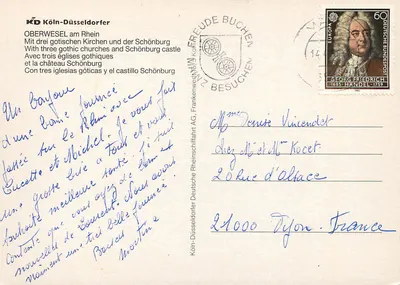 KD Köln-Düsseldorfer
OBERWESEL am Rhein
Mit drei gotischen Kirchen und der Schönburg
With three gothic churches and Schönburg castle
Avec trois églises gothiques
et la château Schönburg
Con tres iglesias góticas y el castillo Schönburg
Un bonjour
d'une bonne journée
passée sur le Rhin avec
Lucette et Michel. Je vous fait
une grosse bise à tous et vous
souhaite meilleure santé. Je suis
contente que vous ayez de
nouvelles de Laurent. Nous avons
vraiment une très belle journée.
Martine
Köln-Düsseldorfer Deutsche Rheinschiffahrt AG, Frankenwerft
FREUDE BUCHEN
BESUCHEN
60
GEORG FRIEDRICH
HÄNDEL
1685-1759
Mme Denise Vincendet
chez M et Mme Kocet
20 Rue d'Alsace
21000 Dijon - France